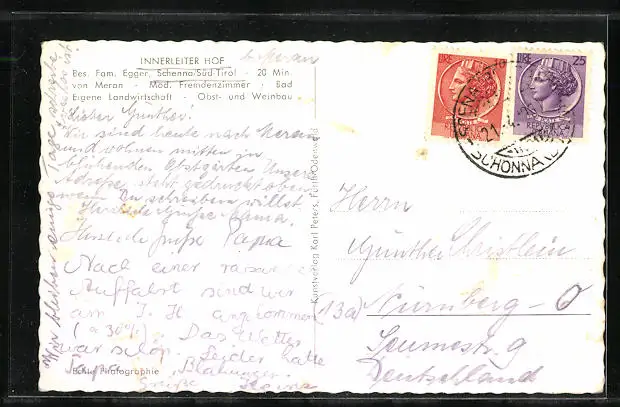 INNERLEITER HOF
b. Meran
Bes. Fam. Egger, Schenna/Süd-Tirol - 20 Min.
von Meran - Mod. Fremdenzimmer - Bad
Eigene Landwirtschaft - Obst- und Weinbau
Lieber Günther!
Wir sind heute nach Meran
und wohnen mitten in
blühenden Obstgärten. Unsere
Adresse steht gedruckt oben
wenn Du schreiben willst.
Herzliche Grüße Mama.
Herzliche Grüße Papa
Nach einer
Auffahrt sind wir
am J. H. angekommen
(~ 30%). Das Wetter
war schön. Leider hatte
Papa Blähungen.
Grüße
Echte Photographie
Wir bleiben einige Tage
Kunstverlag Karl Peters, Fürth/Odenwald
LIRE
LIRE 25
SCHONNA
21
Herrn
Günther Christlein
(13a) Nürnberg - O
Seumestr. 9
Deutschland